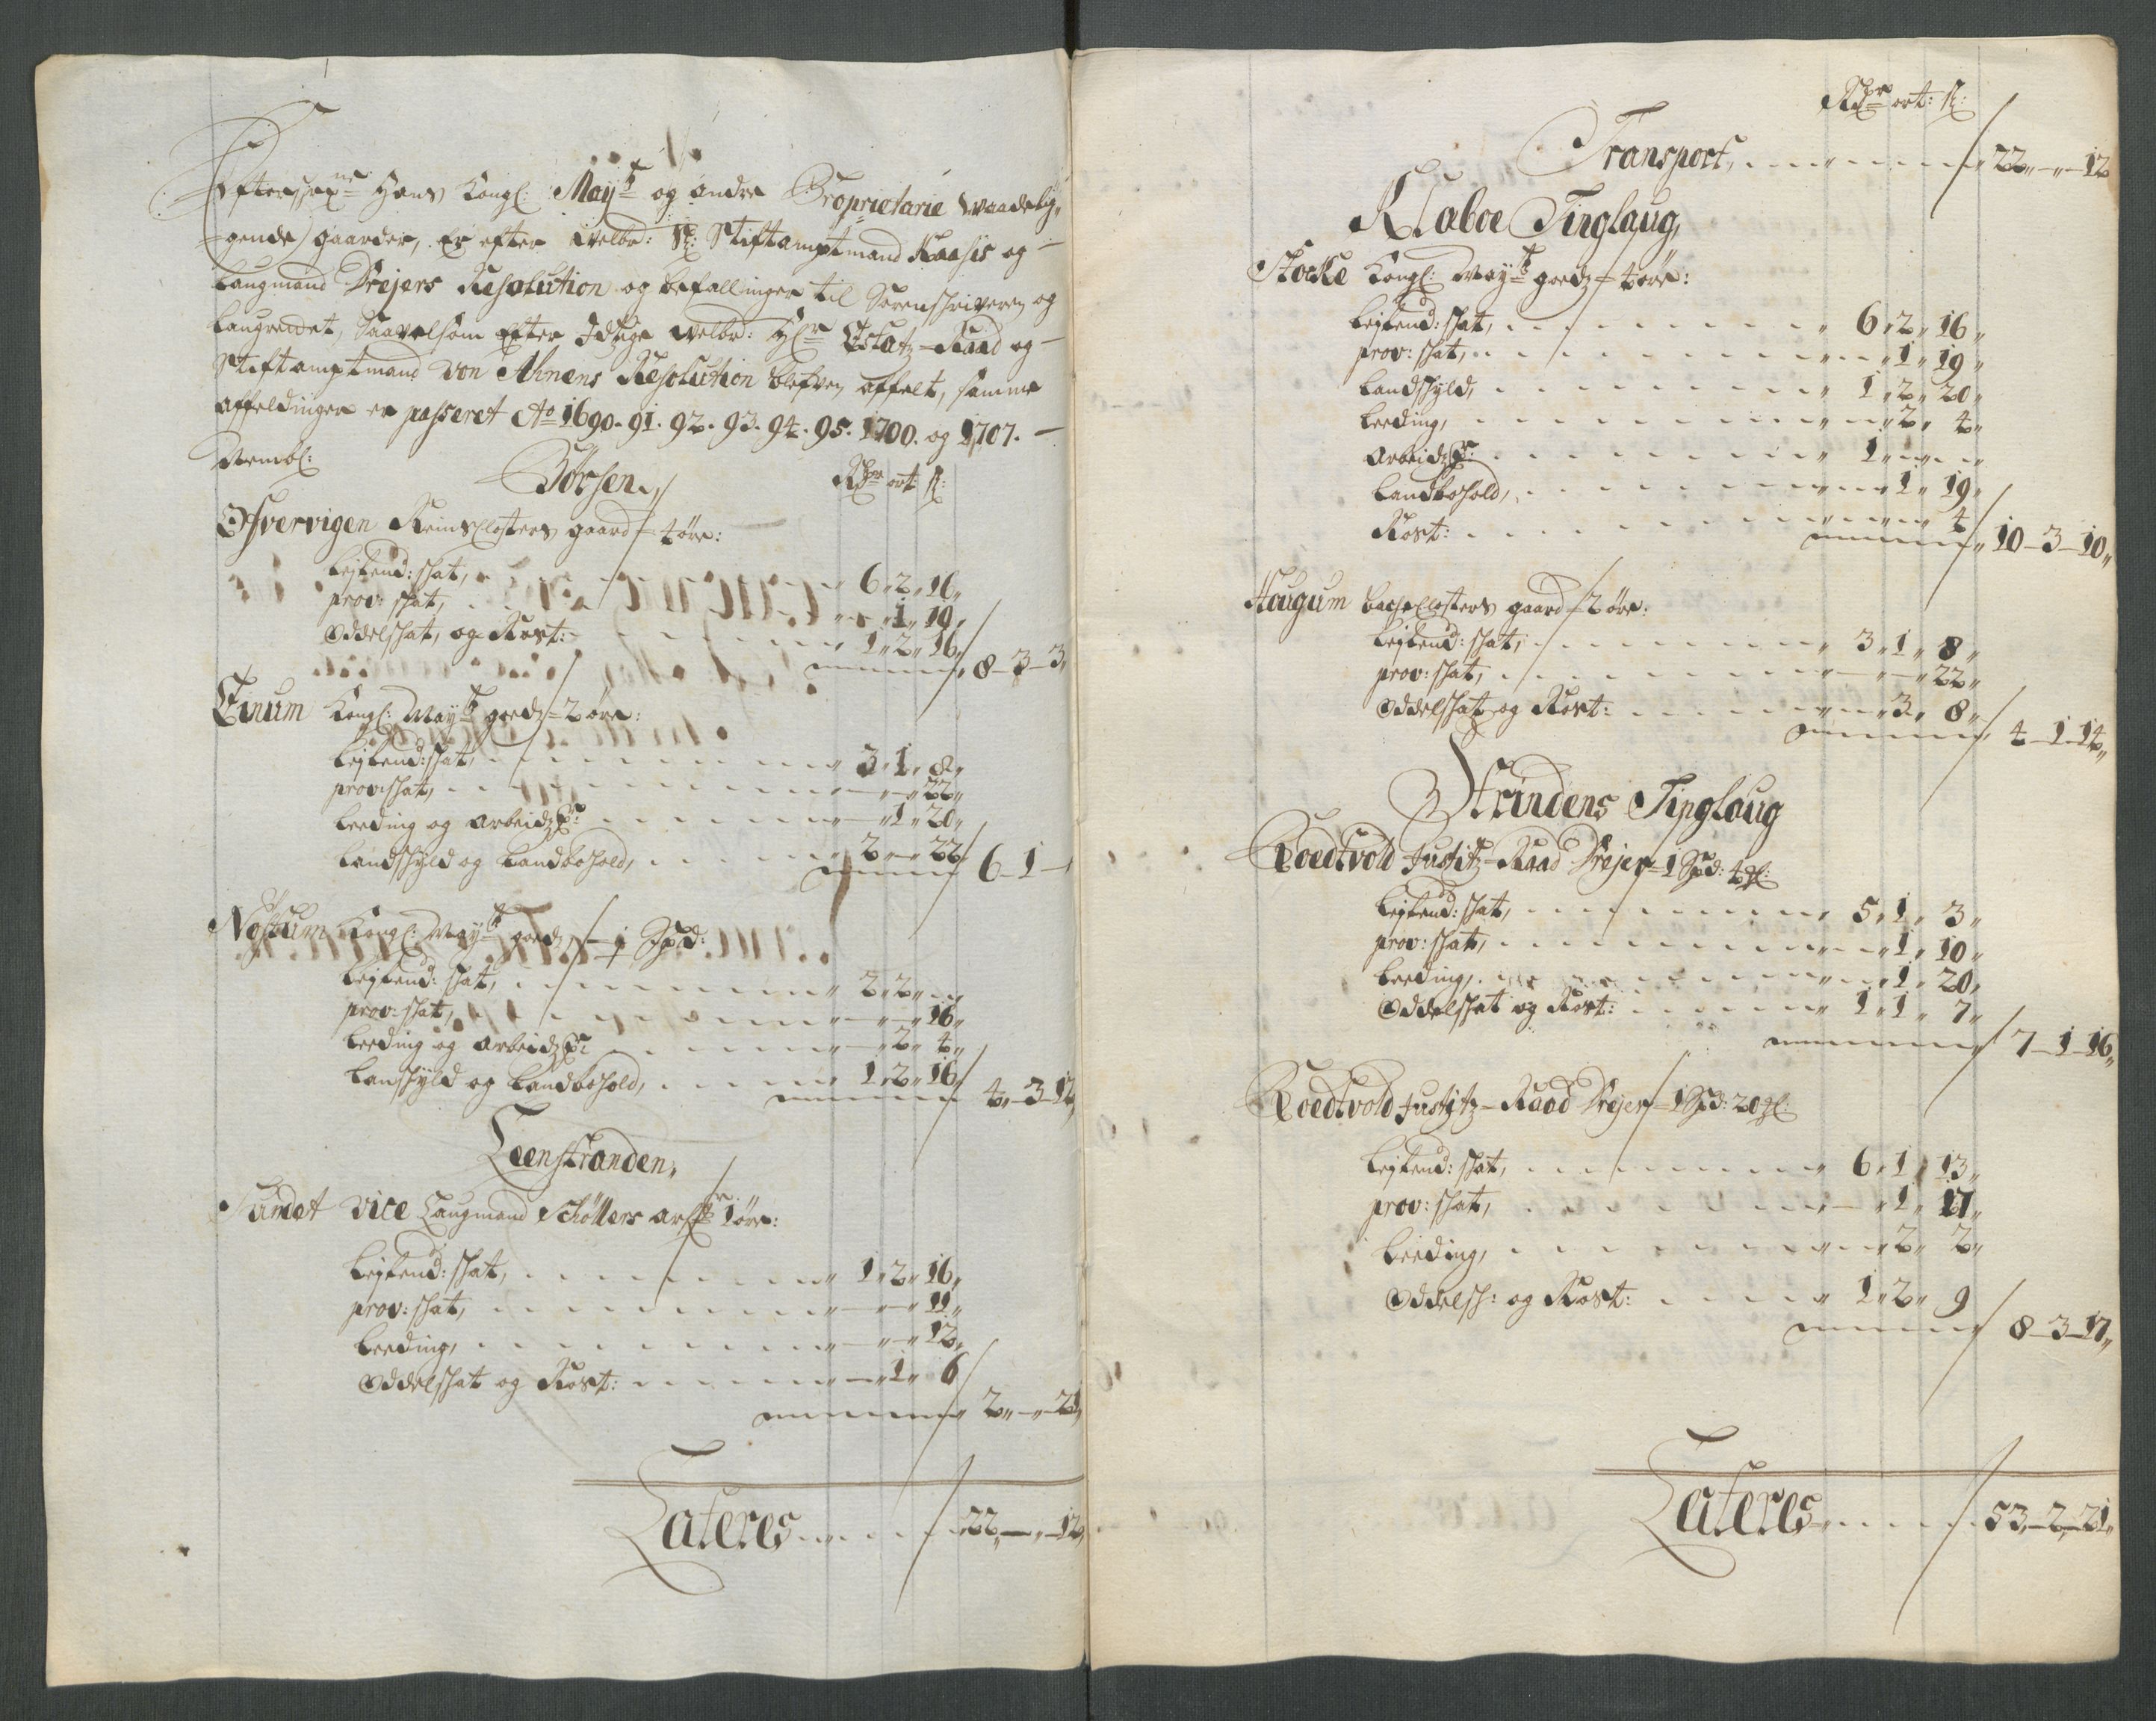 Efterschr:ne Hans Kongl: May:tz og andre Proprietarie Vaadelig„
=gende gaarder, Er efter Welbr: Sl: Stiftamptmand Kaasis og
Laugmand Drejers Resolution og befallinger til Sorenschriveren og
Laugrendet, Saavelsom Efter Idtzige Welbr: Hr: Estatz-Raad og
Stiftamptmand Von Ahnens Resolution blefven affelt, samme
Affeldinger er passeret Ao 1690. 91. 92. 93. 94. 95. 1700. og 1707.
Nembl:
Børsen, Rdr ort: ß:
Ofvervigen Reinsclosters gaard = 4 øre:
Leylend: skat, 6„ 2„ 16„
prov: skat, 1„ 19„
Oddelskat, og Rost: 1„ 2„ 16„
8 - 3 - 3„
Einum Kongl: May:tz goedz = 2 øre:
Leylend: skat, 3„ 1„ 8„
prov: skat, 22„
Leeding og arbeidz: 1„ 20„
Landskyld og Landbohold, 2„ - 22
6 - 1 -
Kongl: May:tz goedz = ½ Spd:
Leylend: skat, 2„ 2„
prov: skat, 16„
Leeding og arbeidz: 2„ 4„
Lanskyld og Landbohold, 1„ 2„ 16
4„ - 3 - 12
Leenstranden,
Sundet Vice Laugmand Schöllers arf: 1 øre:
Leylend: skat, 1„ 2„ 16„
prov: skat, 11„
Leeding, 12„
Oddelskat og Rost: 1„ 6
2„ - „ - 21„
Lateres 22„ - „ - 12„
Rdr ort: ß:
Transport, 22„ - „ - 12
Klaboe Tinglaug,
Stocke Kongl: May:tz goedz = 4 øre:
Leylend: skat, 6„ 2„ 16„
prov: skat, 1„ 19„
Landskyld, 1„ 2„ 20„
Leeding, 2„ 4„
Arbeidz: 1„
Landbohold, 1„ 19„
Rost: 4
10 - 3 - 10„
Haugum Bache Closters gaard = 2 øre:
Leylend: skat, 3„ 1„ 8„
prov: skat, 22„
Oddelskat og Rost: 3„ 8„
4 - 1 - 14„
Strindens Tinglaug
Roedtvold Justitz-Raad Drejer = 1 Spd: 4 ml:
Leylend: skat, 5„ 1„ 3„
prov: skat, 1„ 10„
Leeding, 1„ 20„
Oddelskat og Rost: 1„ 1„ 7„
7 - 1 - 16„
Roedtvold Justitz-Raad Drejer = 1 Spd: 20 ml:
Leylend: skat, 6„ 1„ 13„
prov: skat, 1„ 17„
Leeding, 2„ 2„
Oddelsk: og Rost: 1„ 2„ 9
8 - 3 - 17„
Lateres 53„ - 2„ - 21„